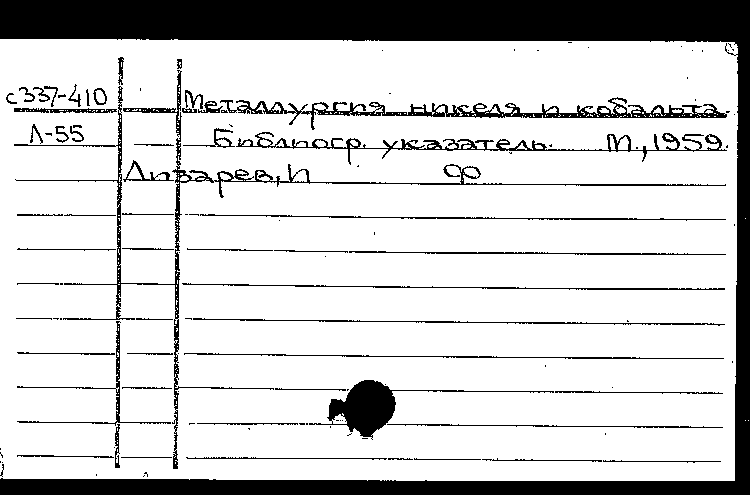 с337-410 Металлургия никеля и кобальта.
Л-55 Библиогр. указатель. М., 1959.
Лизарев, И ФО